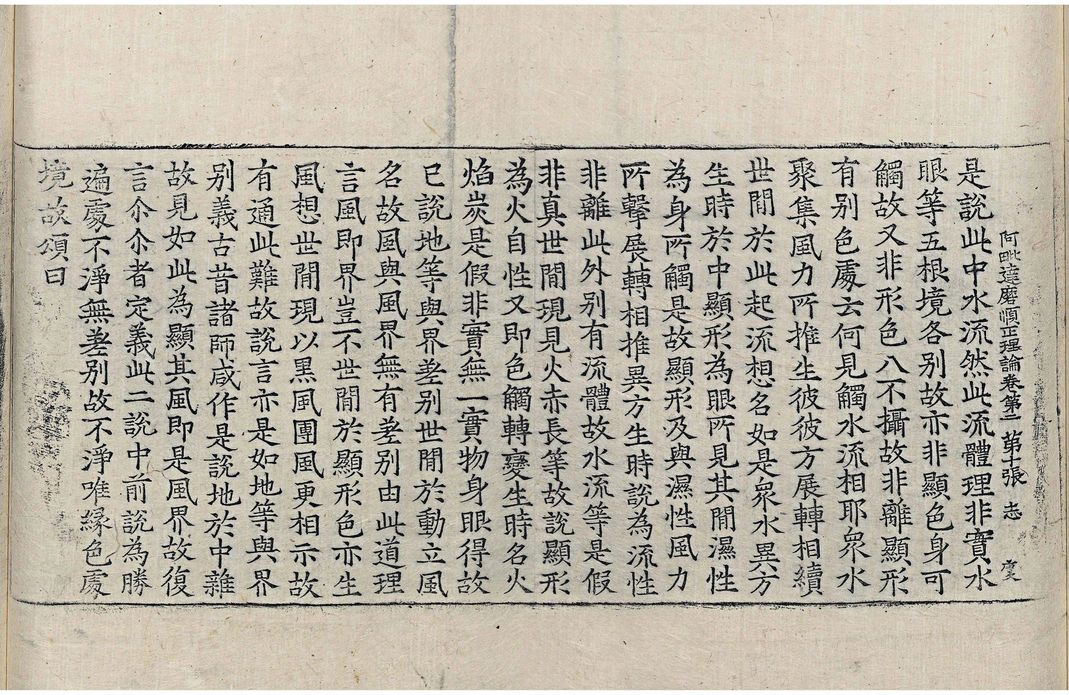 阿毗達磨順正理論卷第二 第十張 志 慶
是說此中水流然此流體理非實水
眼等五根境各別故亦非顯色身可
觸故又非形色八不攝故非離顯形
有別色處去何見觸水流相耶衆水
聚集風力所推生彼彼方展轉相續
世間於此起流想名如是衆水異方
生時於中顯形為眼所見其間濕性
為身所觸是故顯形及與濕性風力
所擊展轉相推異方生時說為流性
非離此外別有流體故水流等是假
非真世間現見火赤長等故說顯形
為火自性又即色觸轉變生時名火
焰炭是假非實無一實物身眼得故
已說地等與界差別世間於動立風
名故風與風界無有差別由此道理
言風即界豈不世間於顯形色亦生
風想世間現以黑風團風更相示故
有通此難故說言亦是如地等與界
別義古昔諸師咸作是說地於中雜
故見如此為顯其風即是風界故復
言尒尒者定義此二說中前說為勝
遍處不淨無差別故不淨唯緣色處
境故頌曰